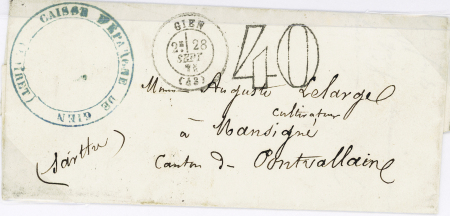 CAISSE D'EPARGNE DE GIEN
GIEN
2E 28
SEPT
(43)
40
Auguste Lelarge
cultivateur
à Mansigné
(Sarthe)
Canton de Pontvallain